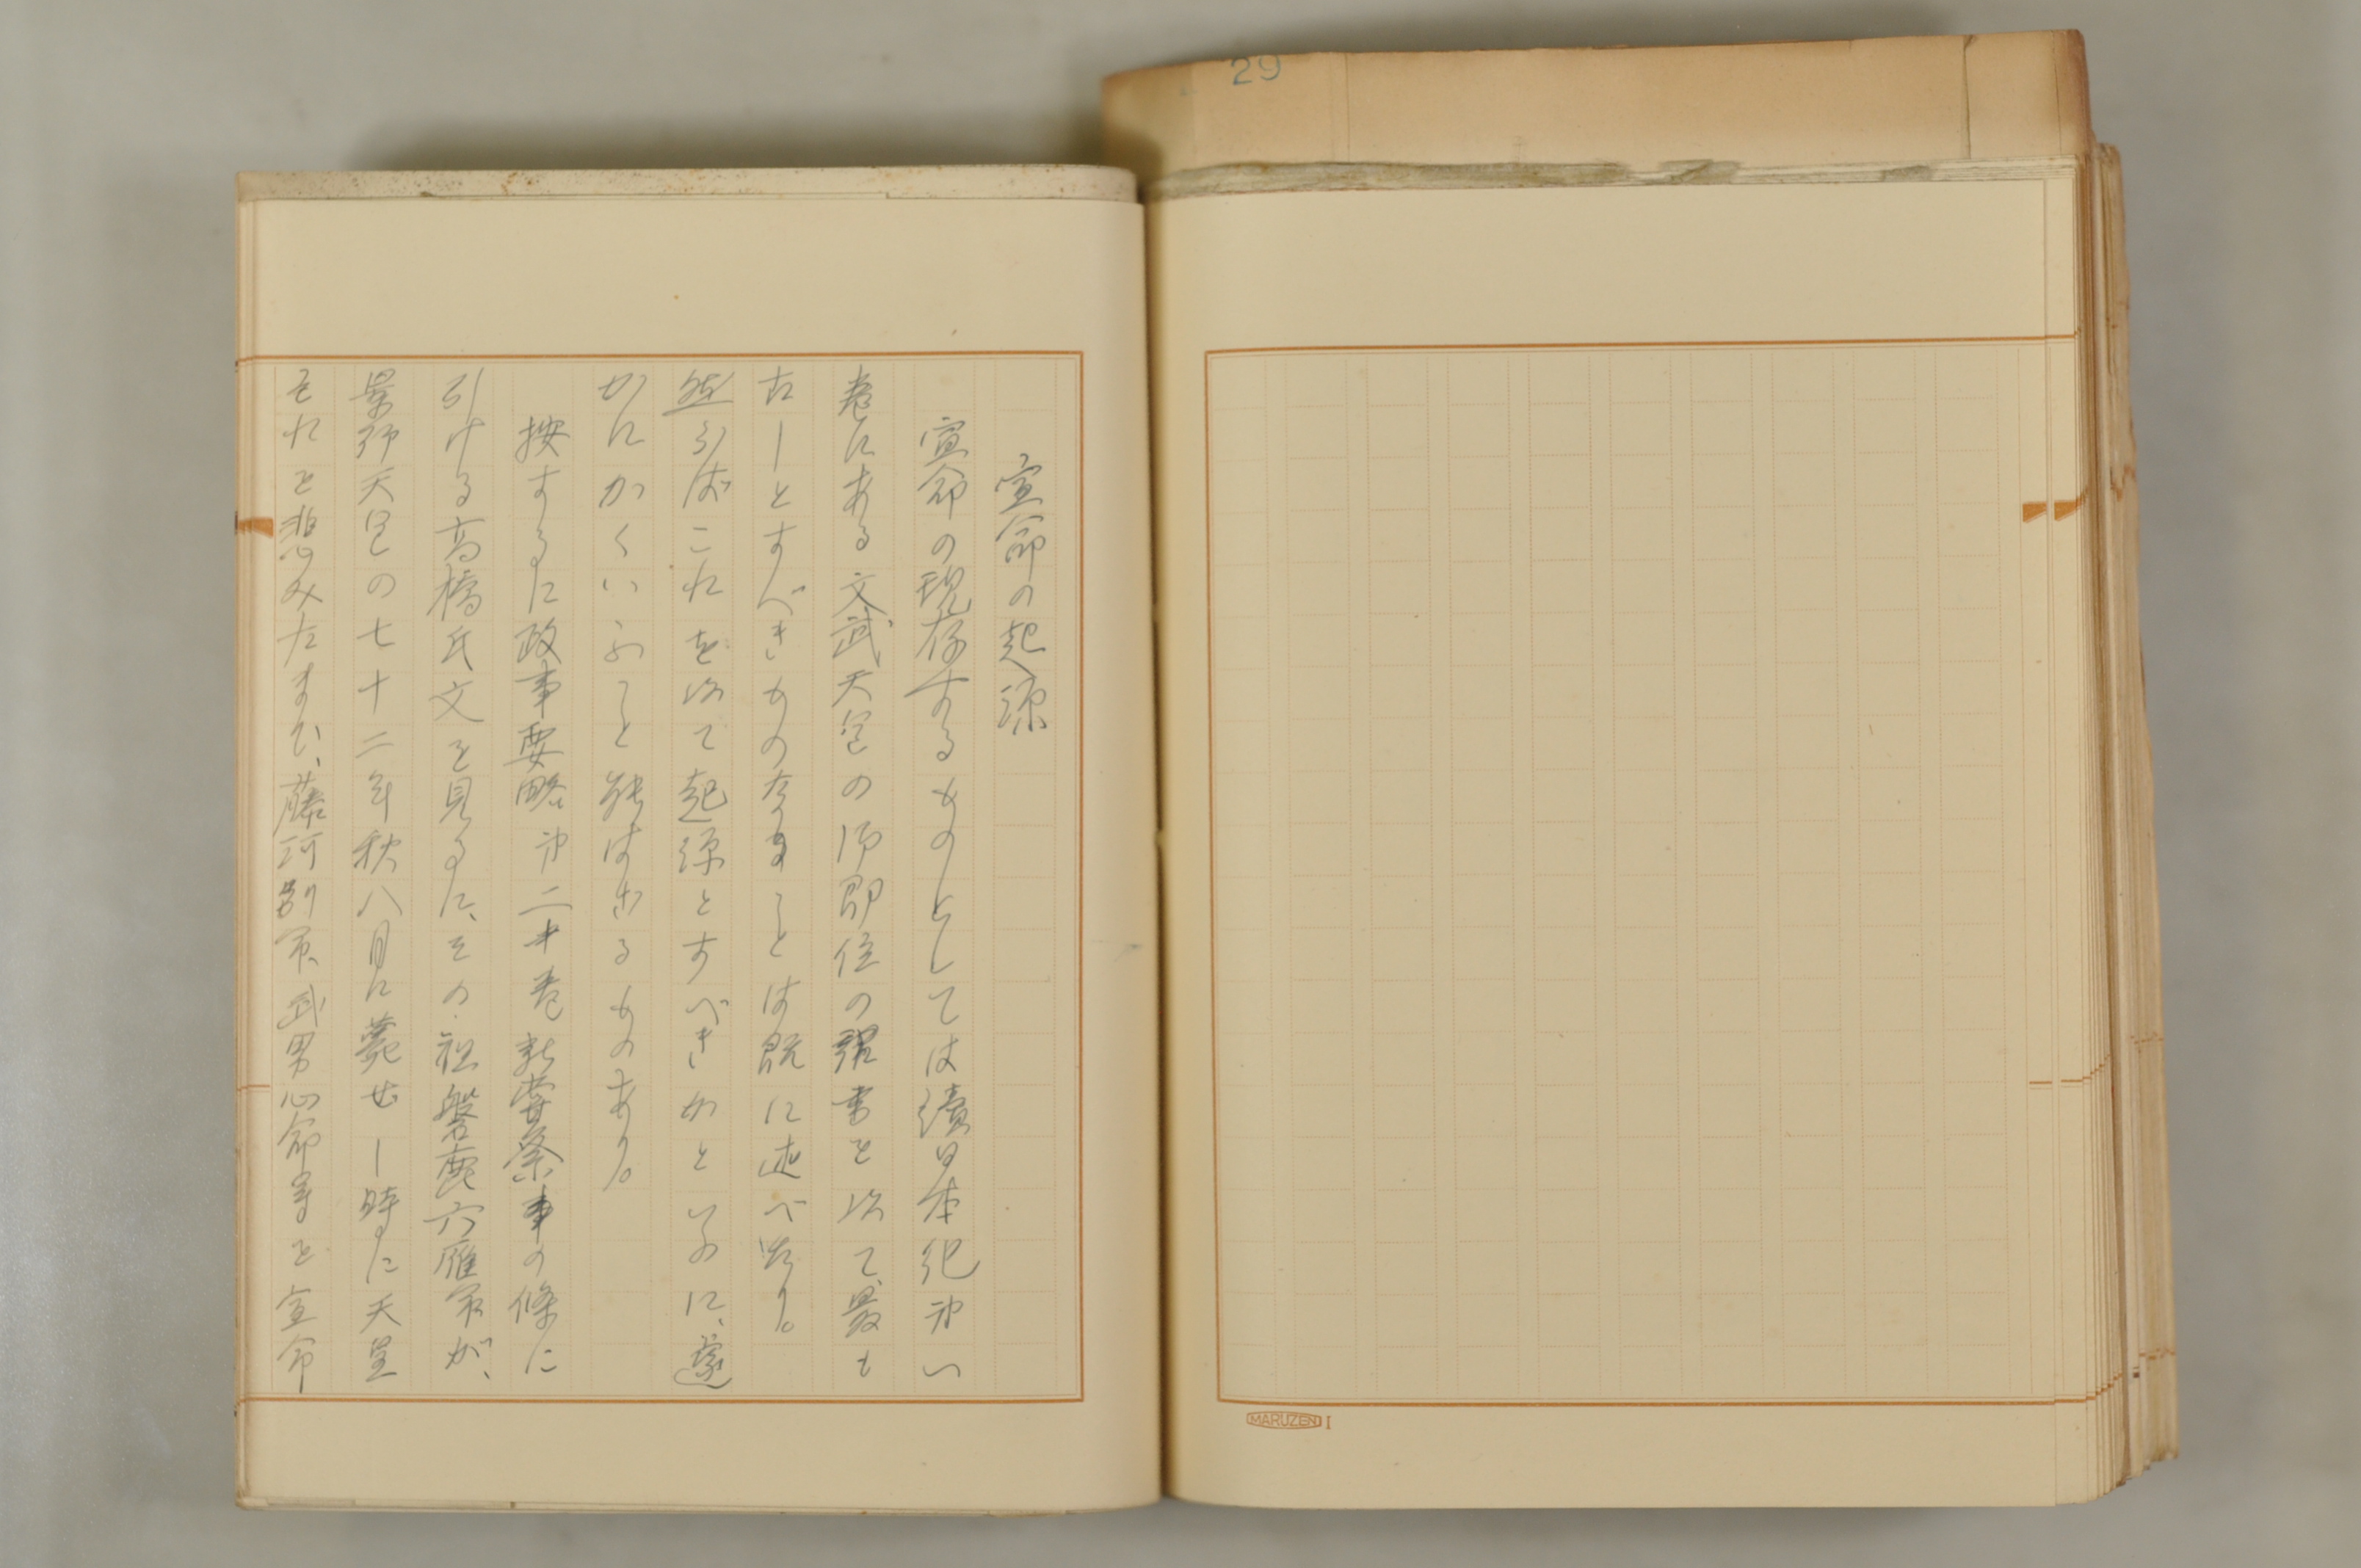 29
MARUZEN I
宣命の起源
宣命の現存するものとしては續日本紀第一
巻にある文武天皇の御即位の詔書を以て最も
古しとすべきものなることは既に述べたり。
然らばこれを以て起源とすべきかといふに、遽
かにかくいふこと能はざるものあり。
按ずるに政事要略第二十巻新嘗祭事の條に
引ける高橋氏文を見るに、その祖磐鹿六雁命が、
景行天皇の七十二年秋八月に薨せし時に天皇
それを悲みたまひ、藤河別命、武男心命等を宣命